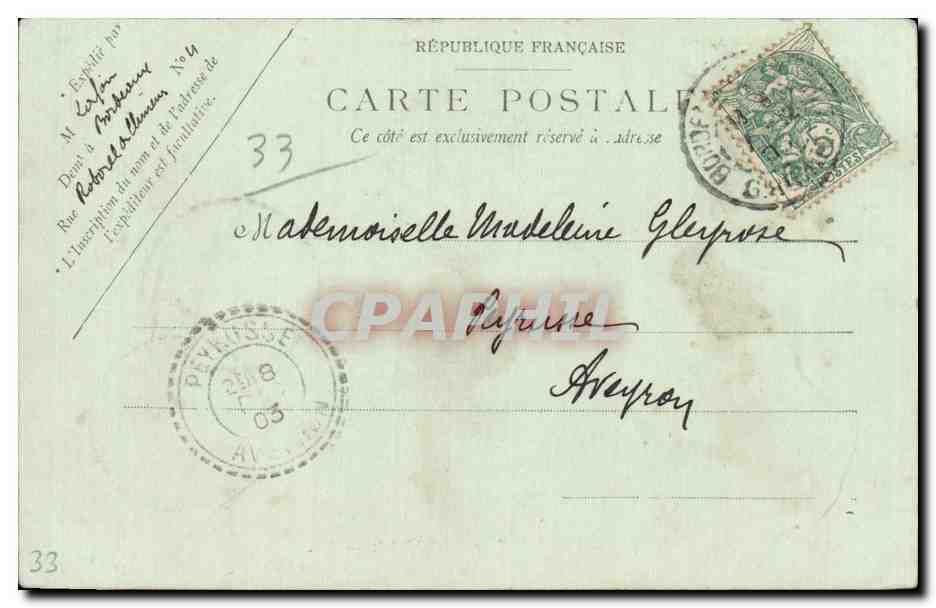 * Expédié par
M Lafon
Demt à Bordeaux
Rue Roborel de Climens No 4
* L'Inscription du nom et de l'adresse de
l'expéditeur est facultative.
RÉPUBLIQUE FRANÇAISE
CARTE POSTALE
Ce côté est exclusivement réservé à l'adresse
33
BORDE
POSTES
Mademoiselle Madeleine Gleyrose
CPAPHIL
Peyrusse
Aveyron
PEYRUSSE
8
03
33